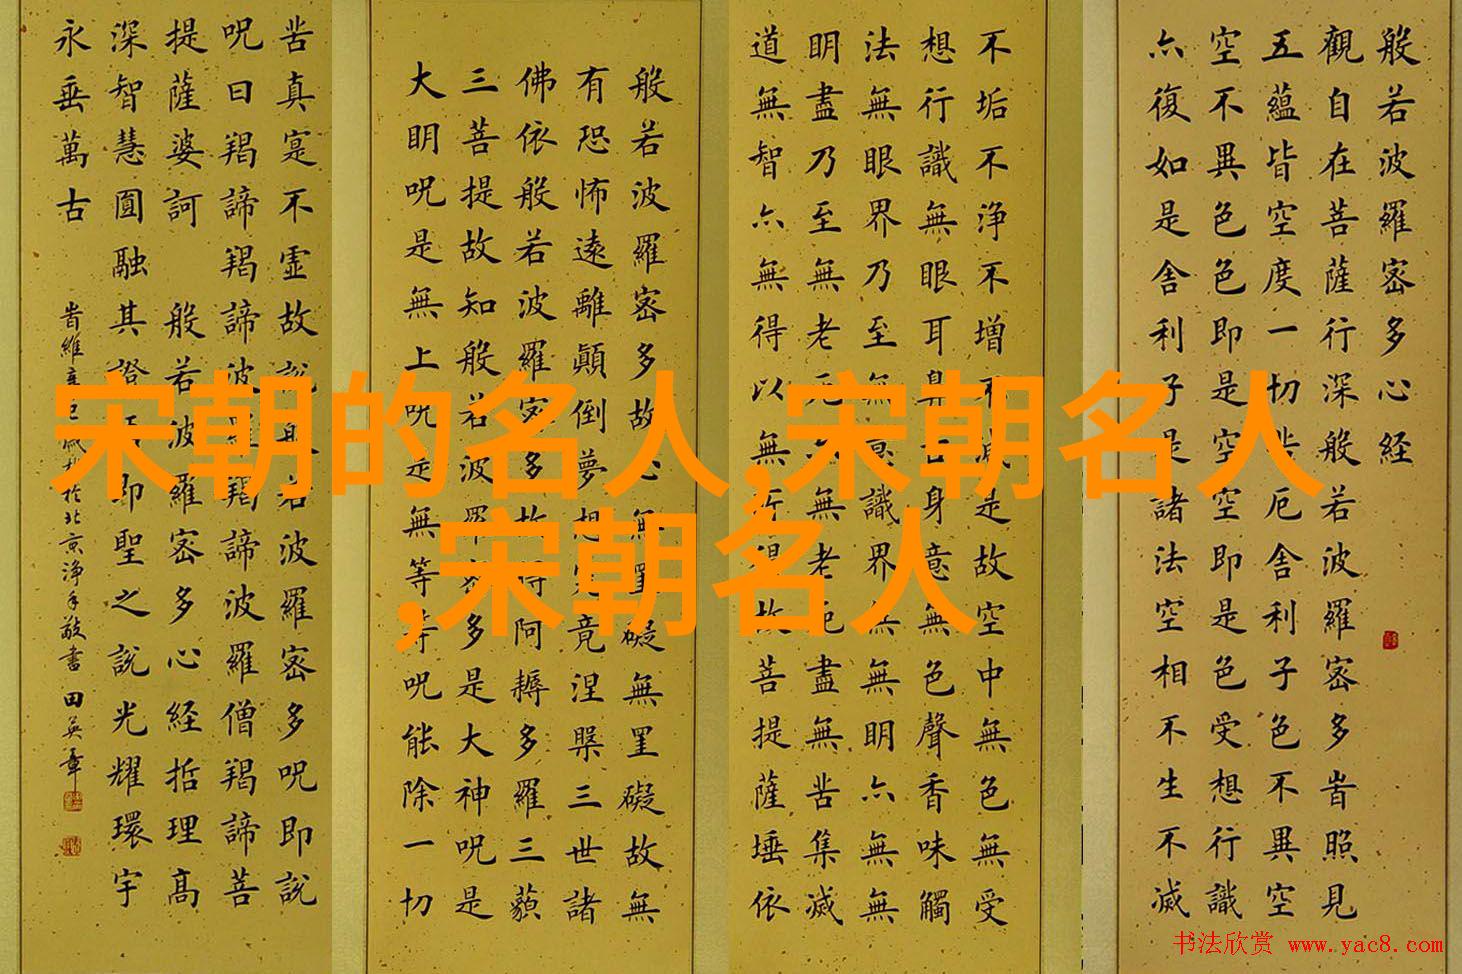 宋朝的名人,宋朝名人
,宋朝名人
般若波羅密多心経
觀自在菩薩行深般若波羅密多旹照見
五蘊皆空度一切苦厄舍利子色不異空
空不異色色即是空空即是色受想行識
亦復如是舍利子是諸法空相不生不滅
不垢不浄不增不減是故空中無色無受
想行識無眼耳鼻舌身意無色聲香味觸
法無眼界乃至無意識界無無明亦無無
明盡乃至無老死亦無老死盡無苦集滅
道無智亦無得以無所得故菩提薩埵依
般若波羅密多故心無罣礙無罣礙故無
有恐怖遠離顛倒夢想究竟涅槃三世諸
佛依般若波羅密多故得阿耨多羅三藐
三菩提故知般若波羅密多是大神呪是
大明呪是無上呪是無等等呪能除一切
苦真寔不虛故說般若波羅密多呪即說
呪曰羯諦羯諦波羅羯諦波羅僧羯諦菩
提薩婆訶 般若波羅密多心経括理高
深智慧圓融其證即聖之說光耀環宇
永垂萬古
旹維巳歲於北京浄手敬書 田英章
书法欣赏 www.yac8.com